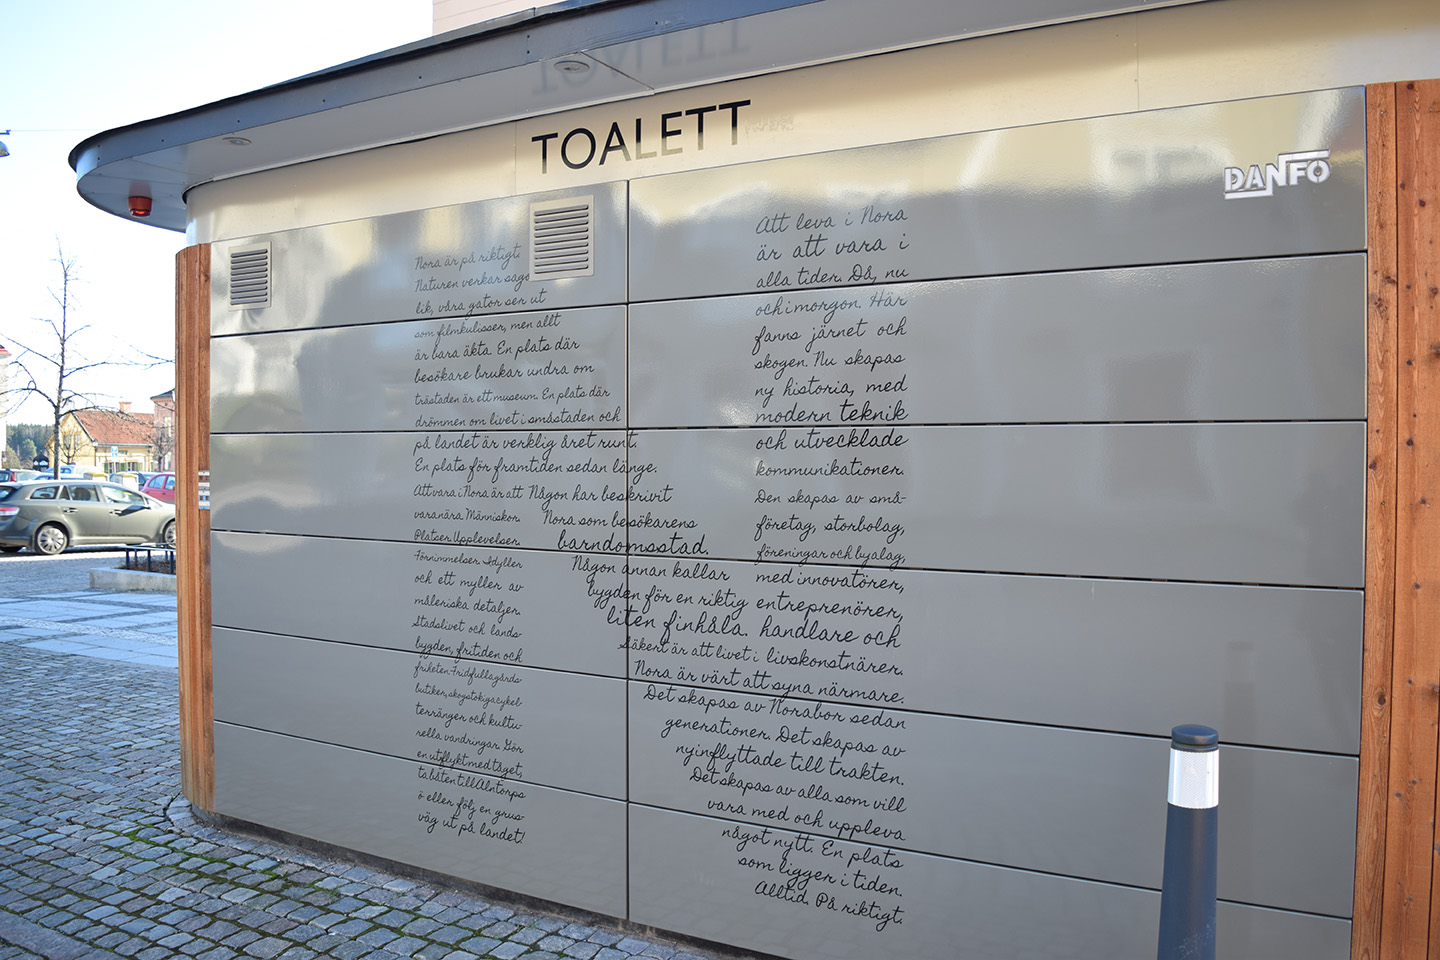 TOALETT
DANFO
Nora är på riktigt.
Naturen verkar sago
lik, våra gator ser ut
som filmkulisser, men allt
är bara äkta. En plats där
besökare brukar undra om
trästaden är ett museum. En plats där
drömmen om livet i småstaden och
på landet är verklig året runt.
En plats för framtiden sedan länge.
Att vara i Nora är att
vara nära. Människor.
Platser. Upplevelser.
Förnimmelser. Idyller
och ett myller av
måleriska detaljer.
Stadslivet och lands-
bygden, fritiden och
friheten. Fridfulla gårds-
butiker, skogstokiga cykel-
terränger och kultu-
rella vandringar. Gör
en utflykt med tåget,
ta båten till Alntorps
ö eller följ en grus-
väg ut på landet!
Någon har beskrivit
Nora som besökarens
barndomsstad.
Någon annan kallar
bygden för en riktig
liten finhåla.
Säkert är att livet i
Nora är värt att syna närmare.
Att leva i Nora
är att vara i
alla tider. Då, nu
och i morgon. Här
fanns järnet och
skogen. Nu skapas
ny historia, med
modern teknik
och utvecklade
kommunikationer.
Den skapas av små-
företag, storbolag,
föreningar och byalag,
med innovatörer,
entreprenörer,
handlare och
livskonstnärer.
Det skapas av Norabor sedan
generationer. Det skapas av
nyinflyttade till trakten.
Det skapas av alla som vill
vara med och uppleva
något nytt. En plats
som ligger i tiden.
Alltid. På riktigt.